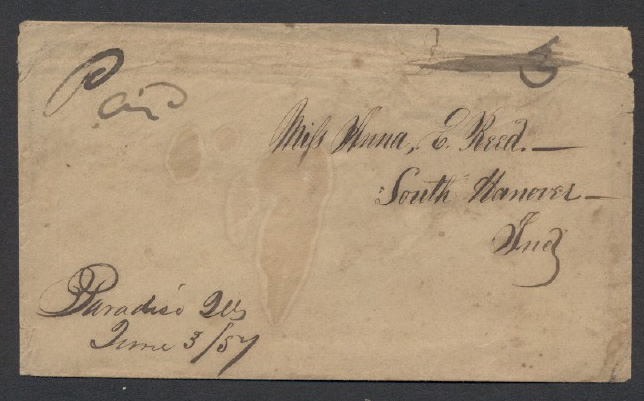 Paid
3
Miss Anna, E. Reed.—
South Hanover—
Ind
Paradise Ills
June 3/57